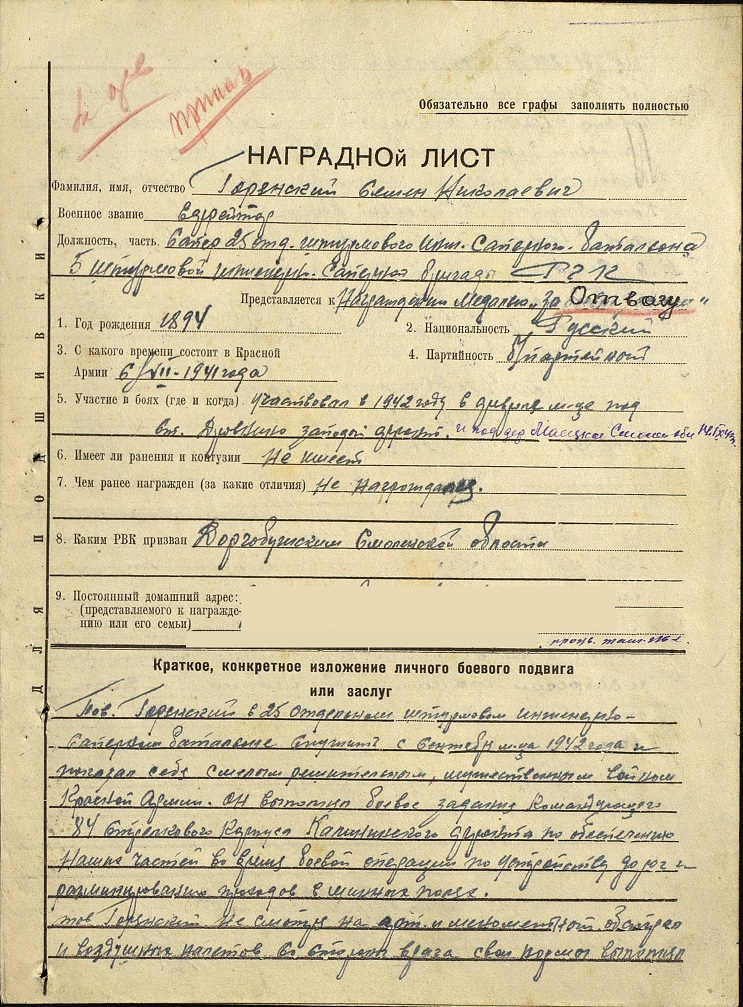 Обязательно все графы заполнять полностью
НАГРАДНОй ЛИСТ
Фамилия, имя, отчество Горенский Семен Николаевич
Военное звание Ефрейтор
Должность, часть Сапер 25 отд. штурмового инж. саперного батальона
5 штурмовой инженерно-саперной бригады РГК
Представляется к Награждению Медалью „За Отвагу“
1. Год рождения 1894
2. Национальность Русский
3. С какого времени состоит в Красной
Армии 6/VII-1941 года
4. Партийность б/партейный
5. Участие в боях (где и когда) участвовал в 1942 году в м-це под
ст. западн фронт. и под дер. Смолен обл
6. Имеет ли ранения и контузии Не имеет
7. Чем ранее награжден (за какие отличия) Не награждался.
8. Каким РВК призван Дорогобужским Смоленской области
9. Постоянный домашний адрес:
(представляемого к награжде-
нию или его семьи)
ДЛЯ ПОДШИВКИ
Краткое, конкретное изложение личного боевого подвига
или заслуг
Тов. Горенский в 25 отдельном штурмовом инженерно-
саперном батальоне служит с сентября м-ца 1942 года и
показал себя смелым решительным, мужественным войном
Красной Армии. Он выполнял боевое задание Командующего
84 стрелкового Корпуса Калининского фронта по обеспечению
наших частей во время боевой операции по устройству дорог и
разминированию проходов в минных полях.
тов Горенский не смотря на арт. и минометный обстрел
и воздушных налетов со стороны врага свои нормы выполнял